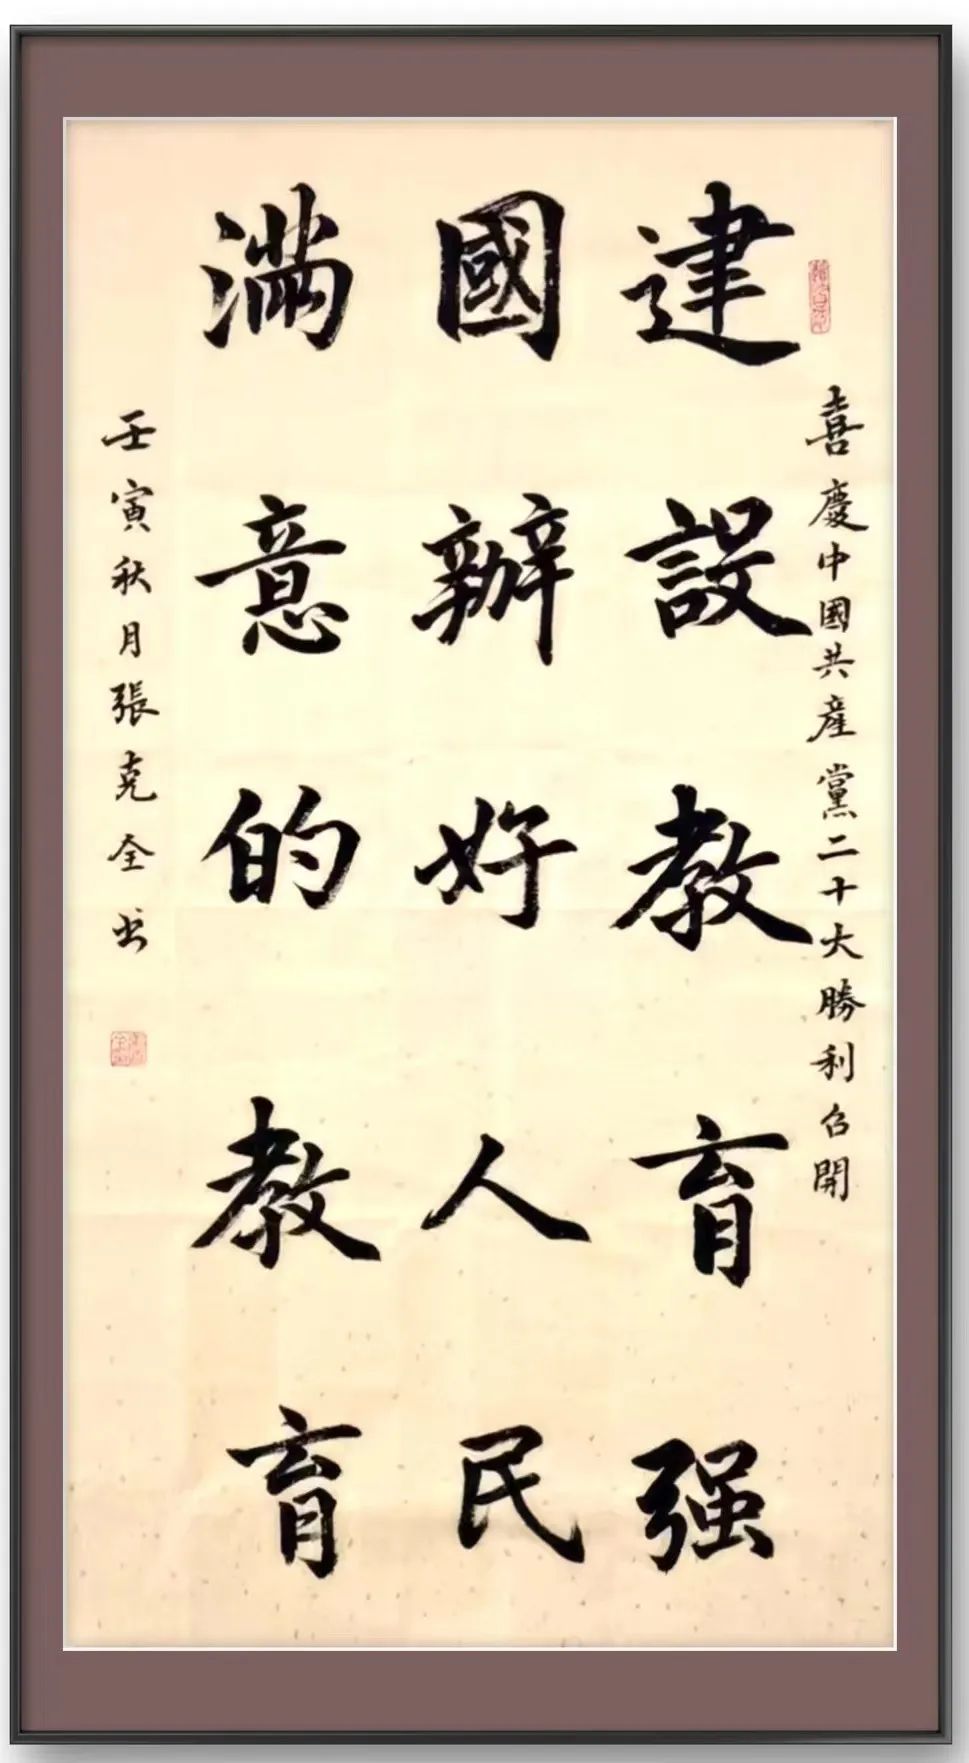 喜慶中國共産黨二十大勝利召開
建設教育强
國辦好人民
滿意的教育
壬寅秋月張克全书